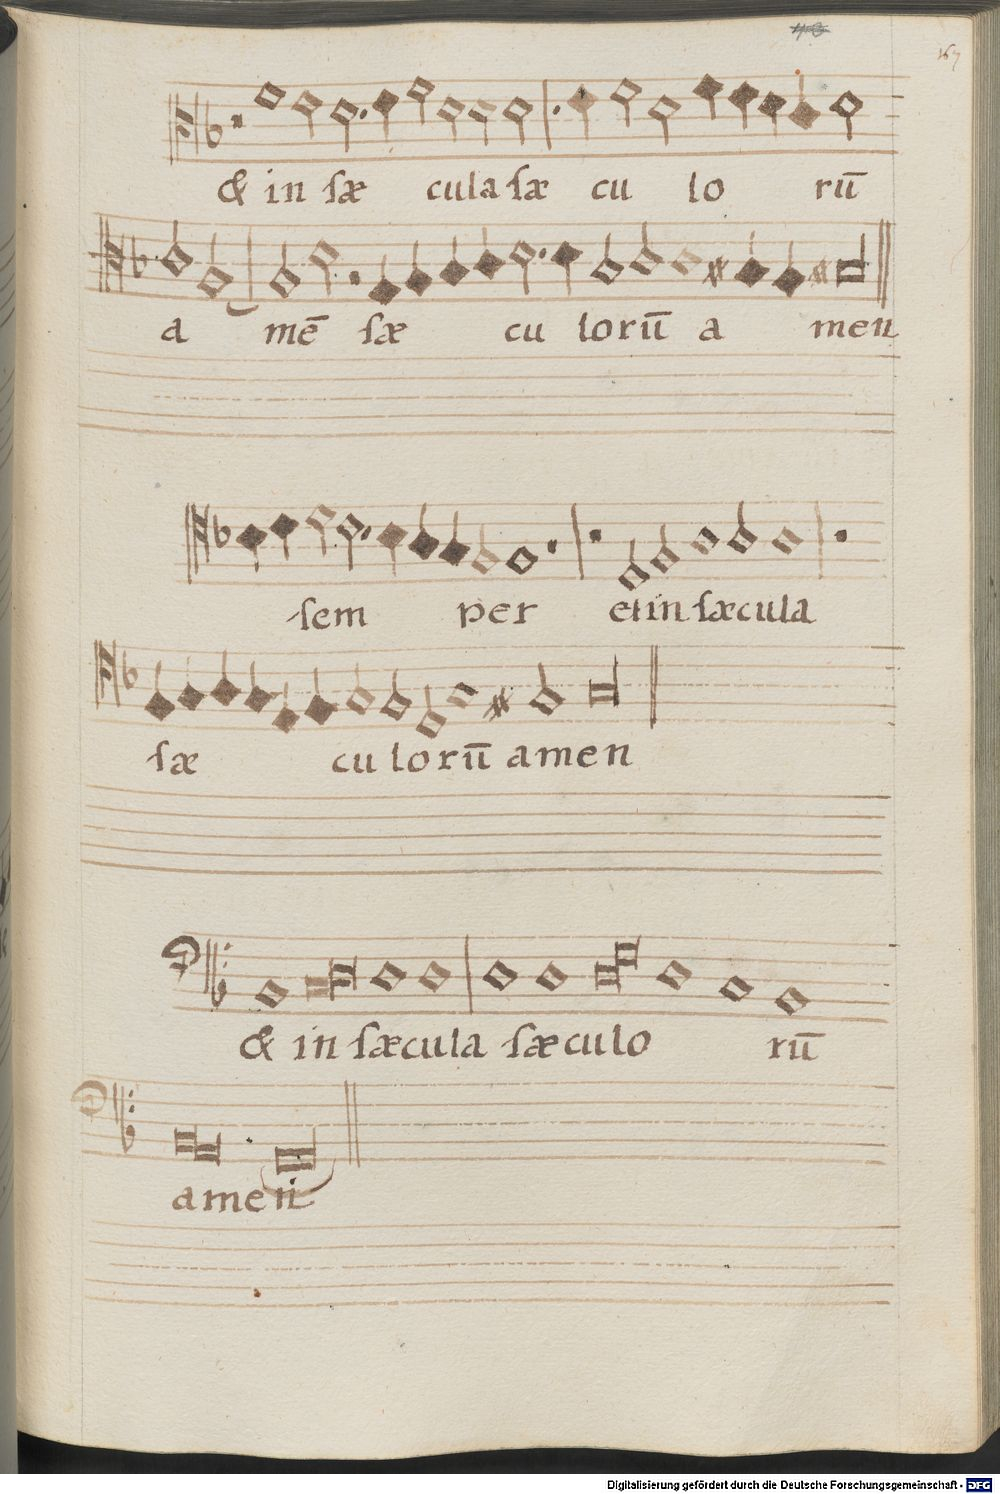 167
& in sæ cula sæ cu lo rū
a mē sæ cu lorū a men
sem per et in sæcula
sæ cu lorū amen
& in sæcula sæculo rū
amen
Digitalisierung gefördert durch die Deutsche Forschungsgemeinschaft - DFG